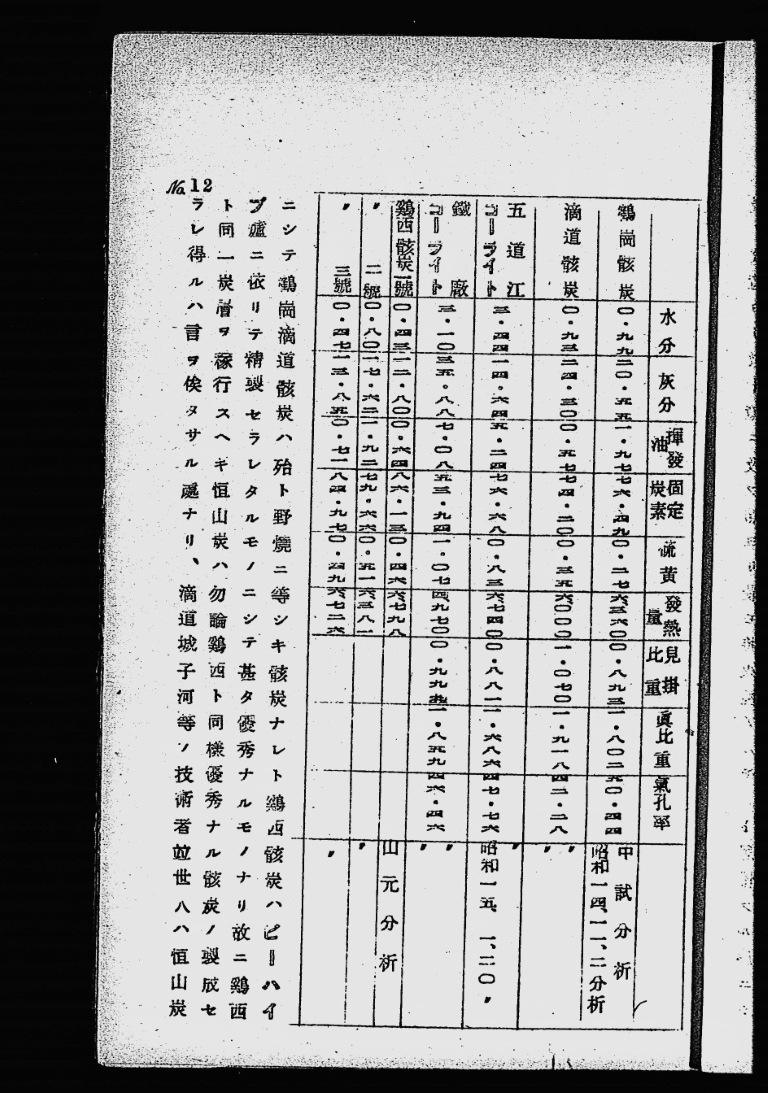 水分 灰分 揮發油 固定炭素 硫黄 發熱量 見掛比重 眞比重 氣孔率
鷄崗骸炭 〇・九九 二〇・五五 一・九七 七六・四九 〇・二七 六三六〇 〇・八九三 一・八〇二 五〇・四四 中試分析 昭和一四、一一、二分析
滴道骸炭 〇・九三 二四・三〇 〇・五七 七四・二〇 〇・三五 六〇〇〇 一・〇七〇 一・九一八 四二・二八 〃 〃
五道江コーライト 三・四四 一四・六四 五・二四 七六・六八 〇・八三 六七四〇 〇・八八二 一・六八六 四七・七六 〃 昭和一五、一、二〇 〃
鐵廠コーライト 三・一〇 三五・八八 七・〇八 五三・九四 一・〇七 四九七〇 〇・九九五 一・八五九 四六・四六 〃 〃
鷄西骸炭一號 〇・四三 一二・八〇 〇・六四 八六・一三 〇・四六 六七九八 山元分析
〃 二號 〇・八〇 一七・六二 一・九二 七九・六六 〇・五一 六三八一 〃
〃 三號 〇・四七 一三・八五 〇・七一 八四・九七 〇・四九 六七二六 〃
ニシテ鷄崗滴道骸炭ハ殆ト野燒ニ等シキ骸炭ナレト鷄西骸炭ハビーハイ
ブ爐ニ依リテ精製セラレタルモノニシテ甚タ優秀ナルモノナリ故ニ鷄西
ト同一炭層ヲ稼行スヘキ恒山炭ハ勿論鷄西ト同樣優秀ナル骸炭ノ製成セ
ラレ得ルハ言ヲ俟タサル處ナリ、滴道城子河等ノ技術者竝世人ハ恒山炭
No.12